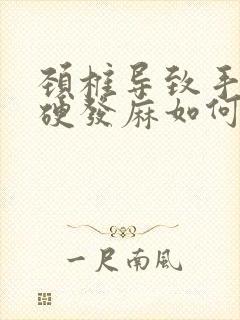 颈椎导致手
硬发麻如何
一尺南風